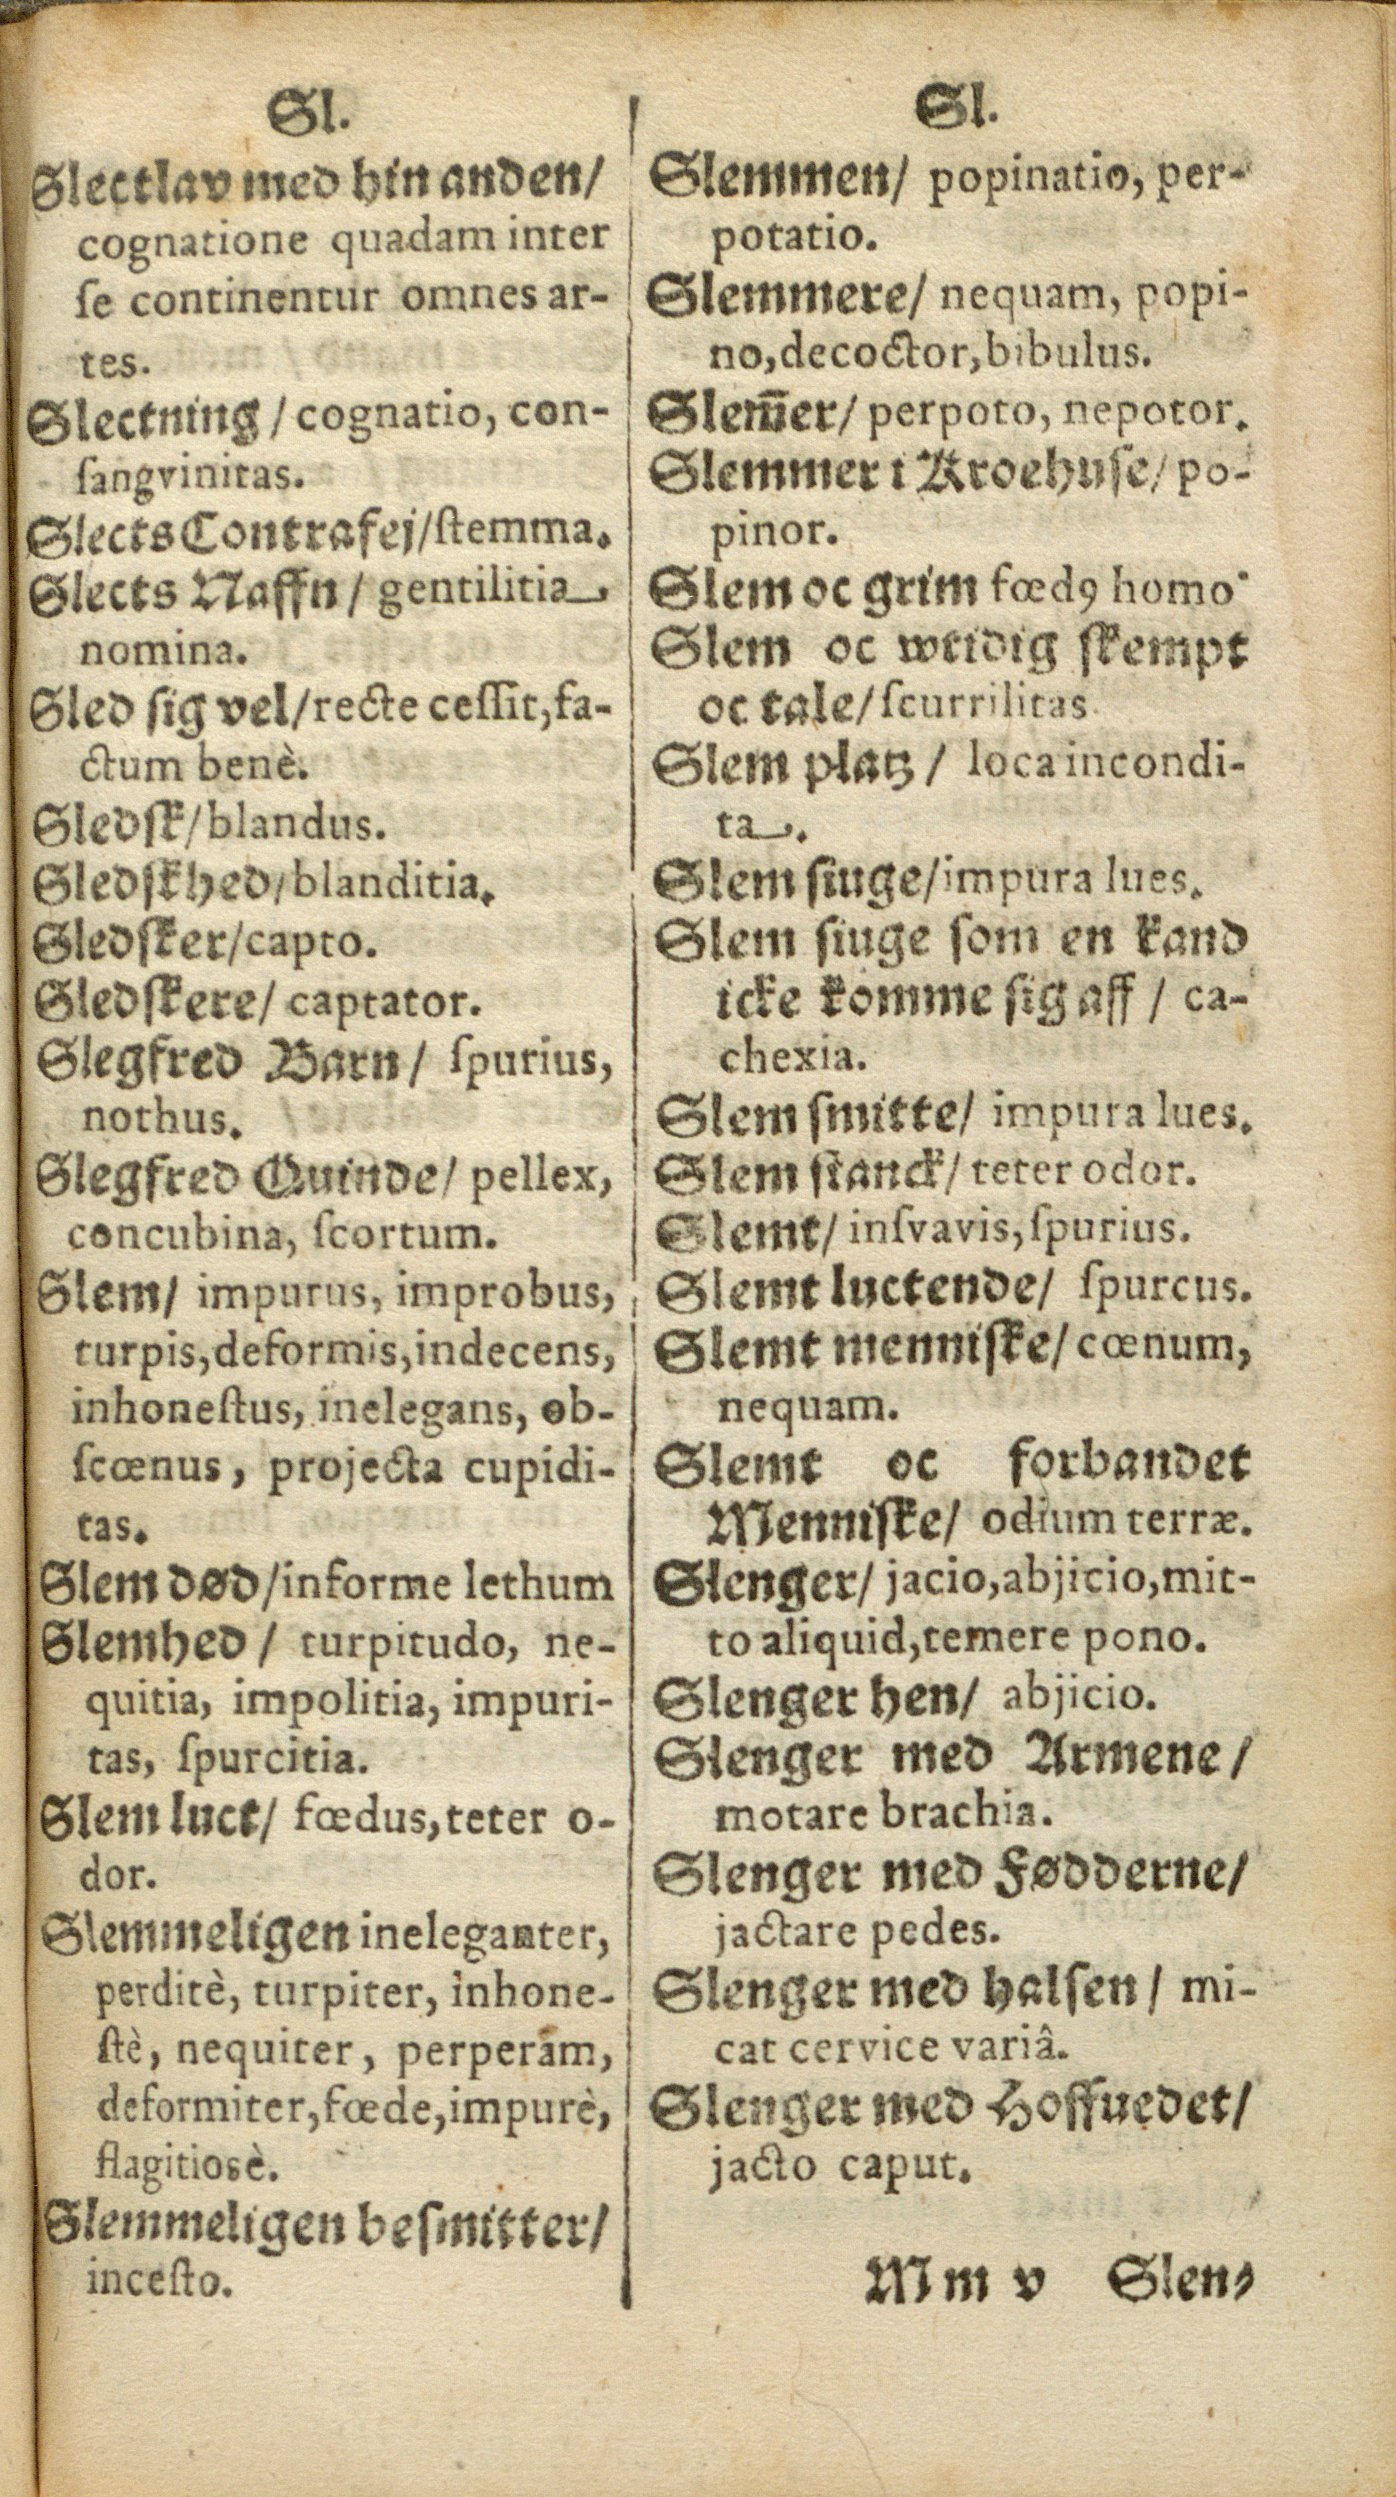 Sl.
Slectlav med hin anden/
cognatione quadam inter
ſe continentur omnes ar-
tes.
Slectning / cognatio, con-
ſangvinitas.
Slects Contrafej/ſtemma.
Slects Naffn / gentilitia
nomina.
Sled ſig vel/recte ceſſit, fa-
ctum benè.
Sledſk/blandus.
Sledſkhed/blanditia.
Sledſker/capto.
Sledſkere/ captator.
Slegfred Barn/ ſpurius,
nothus.
Slegfred Quinde/ pellex,
concubina, ſcortum.
Slem/ impurus, improbus,
turpis, deformis, indecens,
inhoneſtus, inelegans, ob-
ſcœnus, projecta cupidi-
tas.
Slem død/informe lethum
Slemhed / turpitudo, ne-
quitia, impolitia, impuri-
tas, ſpurcitia.
Slem luct/ fœdus, teter o-
dor.
Slemmeligen ineleganter,
perditè, turpiter, inhone-
ſtè, nequiter, perperàm,
deformiter, fœde, impurè,
flagitiosè.
Slemmeligen beſmitter/
inceſto.
Sl.
Slemmen/ popinatio, per-
potatio.
Slemmere/ nequam, popi-
no, decoctor, bibulus.
Slem̅er/ perpoto, nepotor.
Slemmer i Kroehuſe/ po-
pinor.
Slem oc grim fœdꝰ homo
Slem oc wtidig ſkempt
oc tale/ ſcurrilitas
Slem platz / loca incondi-
ta.
Slem ſiuge/impura lues.
Slem ſiuge ſom en kand
icke komme ſig aff / ca-
chexia.
Slem ſmitte/ impura lues.
Slem ſtanck/ teter odor.
Slemt/ inſvavis, ſpurius.
Slemt luctende/ ſpurcus.
Slemt menniſke/ cœnum,
nequam.
Slemt oc forbandet
Menniſke/ odium terræ.
Slenger/ jacio, abjicio, mit-
to aliquid, temere pono.
Slenger hen/ abjicio.
Slenger med Armene/
motare brachia.
Slenger med Fødderne/
jactare pedes.
Slenger med halſen/ mi-
cat cervice variâ.
Slenger med Hoffuedet/
jacto caput.
Mm v Slen⸗